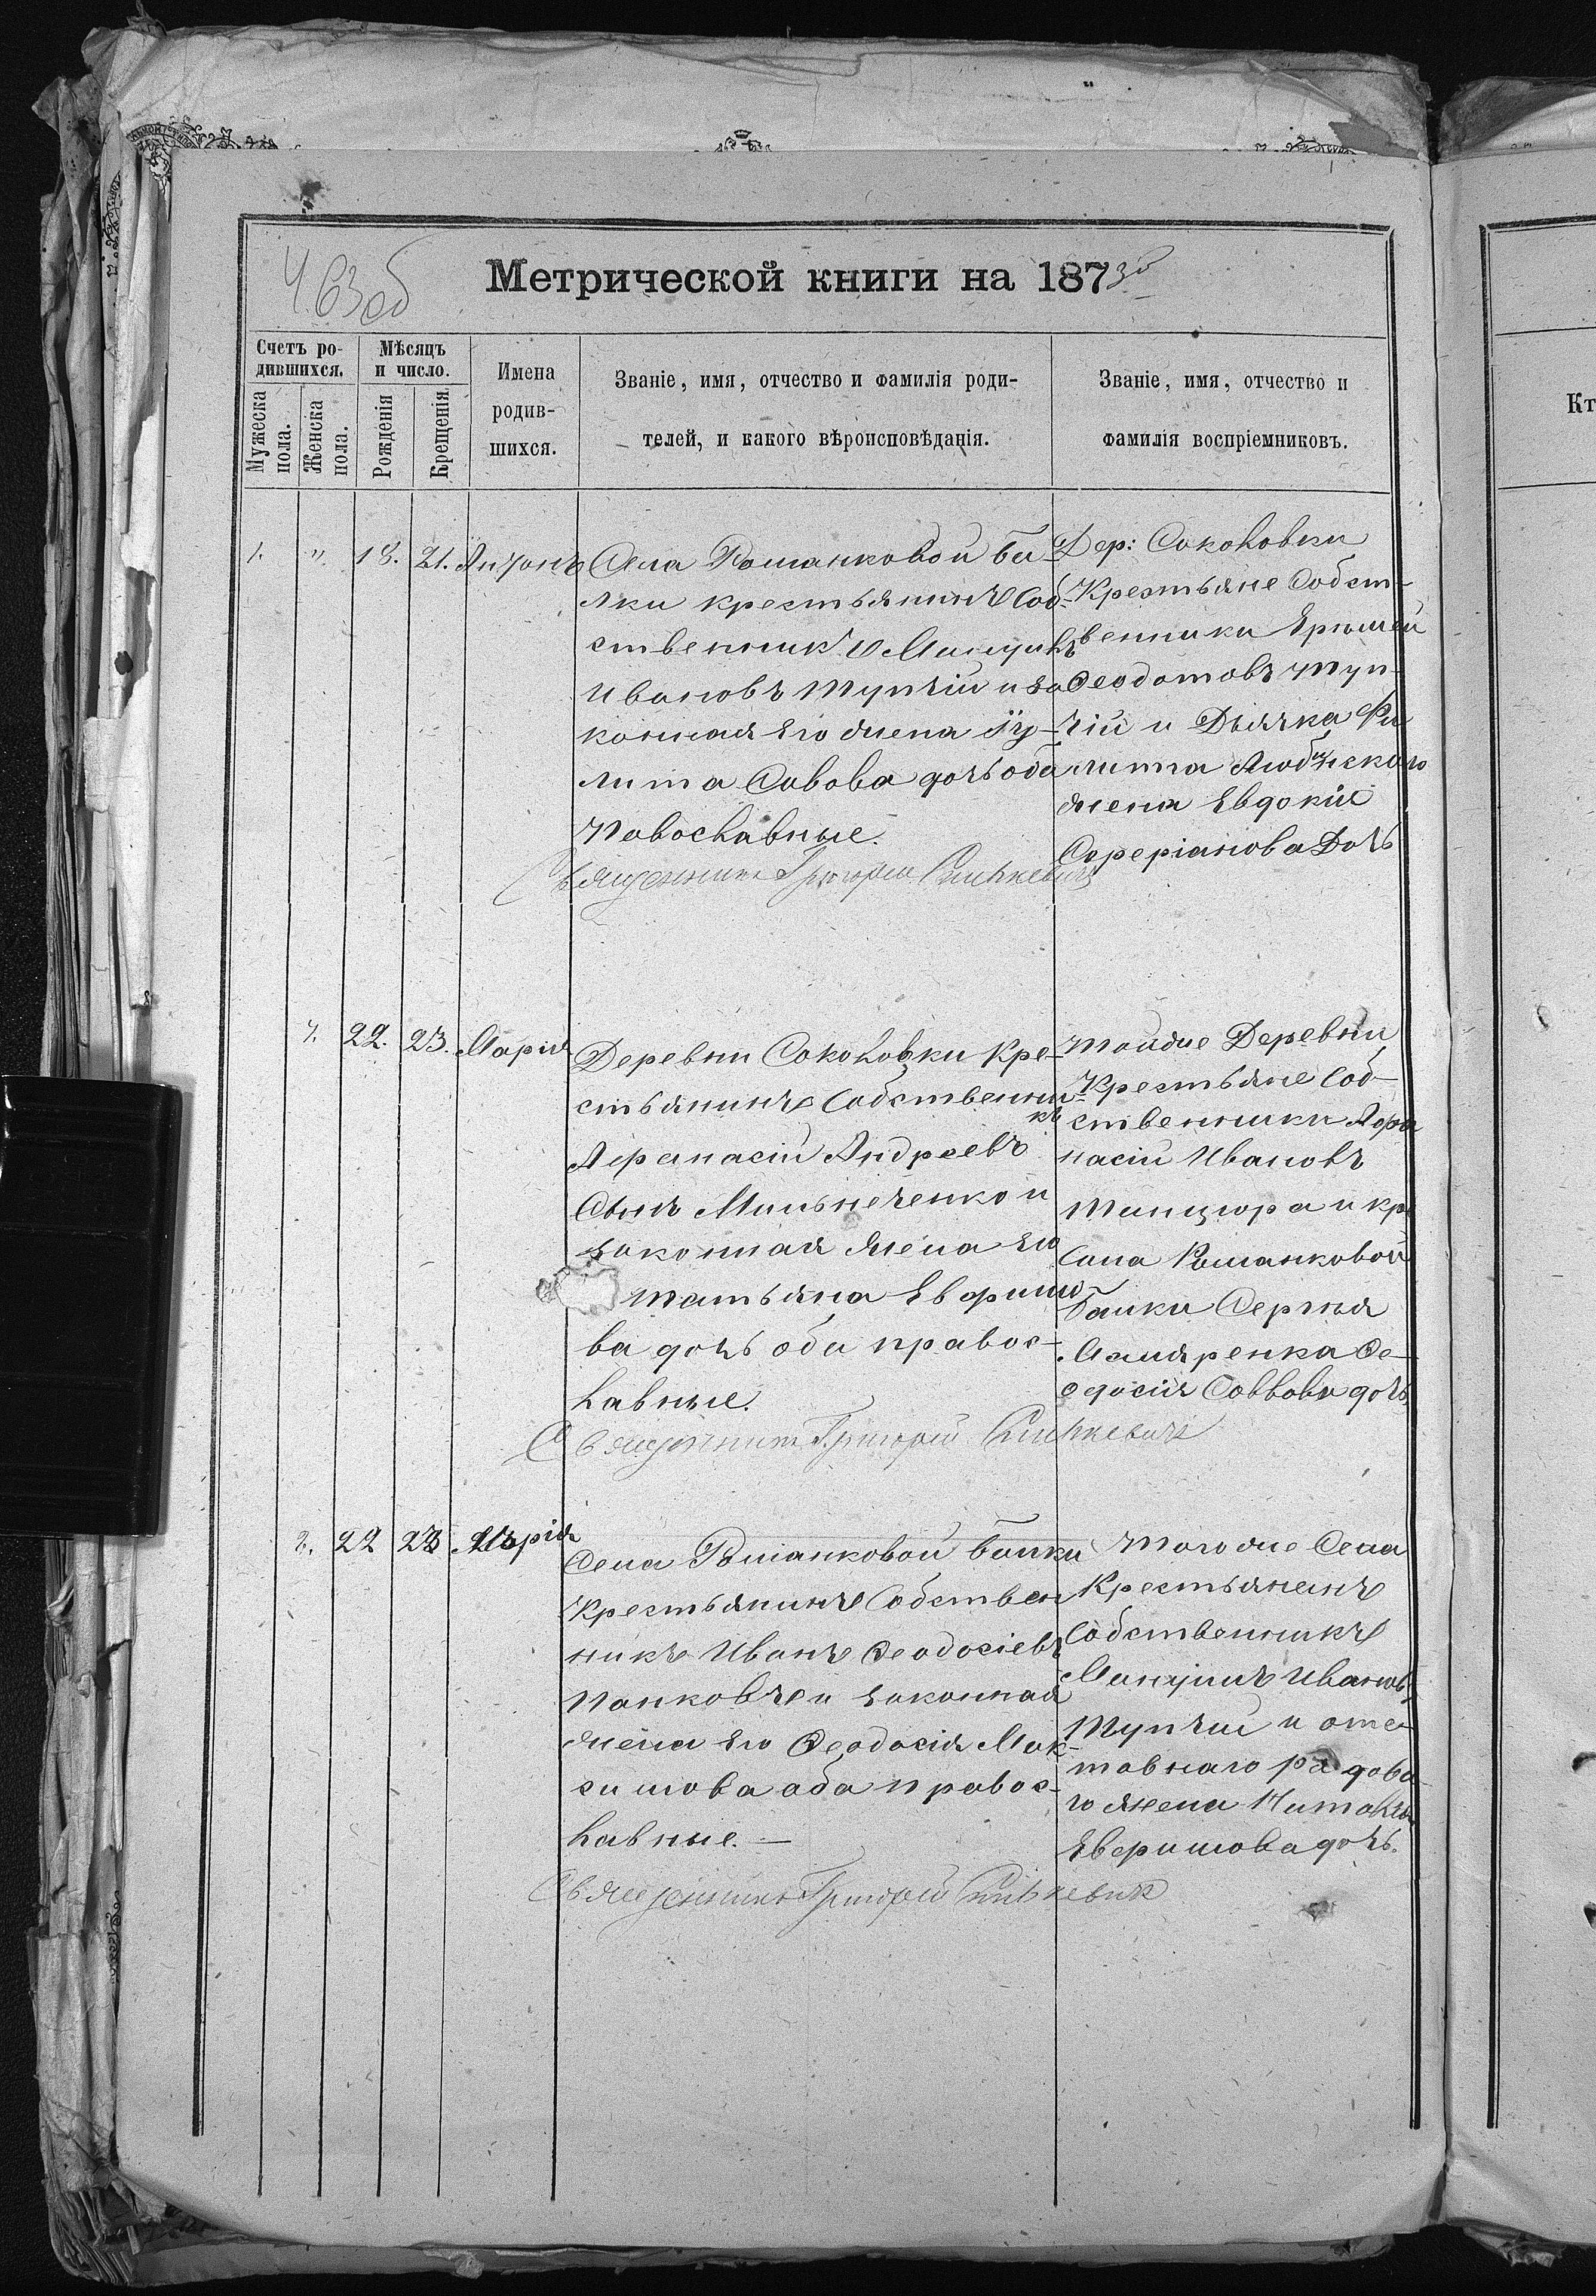 Метрической книги на 1873 г
Счетъ ро-
дившихся.
Мужеска
пола.
Женска
пола.
Мѣсяцъ
и число.
Рожденія
Крещенія
Имена
родив-
шихся.
Званіе, имя, отчество и фамилія роди-
телей, и какого вѣроисповѣданія.
Званіе, имя, отчество и
фамилія воспріемниковъ.
Кт
1. " 18. 21. Антонъ
Села Романковой ба-
лки крестьянинъ Соб-
ственникъ
Ивановъ Тупчій и за
конная его жена Іу-
лита Савова дочь оба
Православные.
Священникъ Григорій
Дер: Соколовки
Крестьяне Собст-
венники
Феодотовъ Туп-
чій и Дьячка Фи
липпа
жена Евдокія
дочь
1. 22. 23. Марія
Деревни Соколовки Кре-
стьянинъ Собственни-
къ
Афанасій Андреевъ
Сынъ Мильнеченко и
законная жена его
Татьяна Ефимо-
ва дочь оба правос-
лавные.
Священникъ Григорій
Тойже Деревни
Крестьяне Соб-
ственники Афа
насій Ивановъ
Танцюра и кр
Села Романковой
балки Сергѣя
Ѳе-
одосія Саввова дочь
2. 22 23 Марія
Села Романковой балки
Крестьянинъ Собствен
никъ Иванъ Ѳеодосіевъ
Панковъ и законная
жена его Ѳеодосія Мак-
симова оба правос-
лавные. —
Священникъ Григорій
Тогоже Села
Крестьянинъ
Собственникъ
Ивановъ
Тупчій и отс-
тавнаго рядово-
го жена
Ефимова дочь.